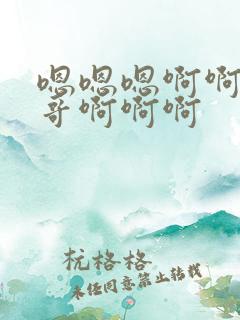 嗯嗯嗯啊啊
哥啊啊啊
杭格格
未经同意禁止转载